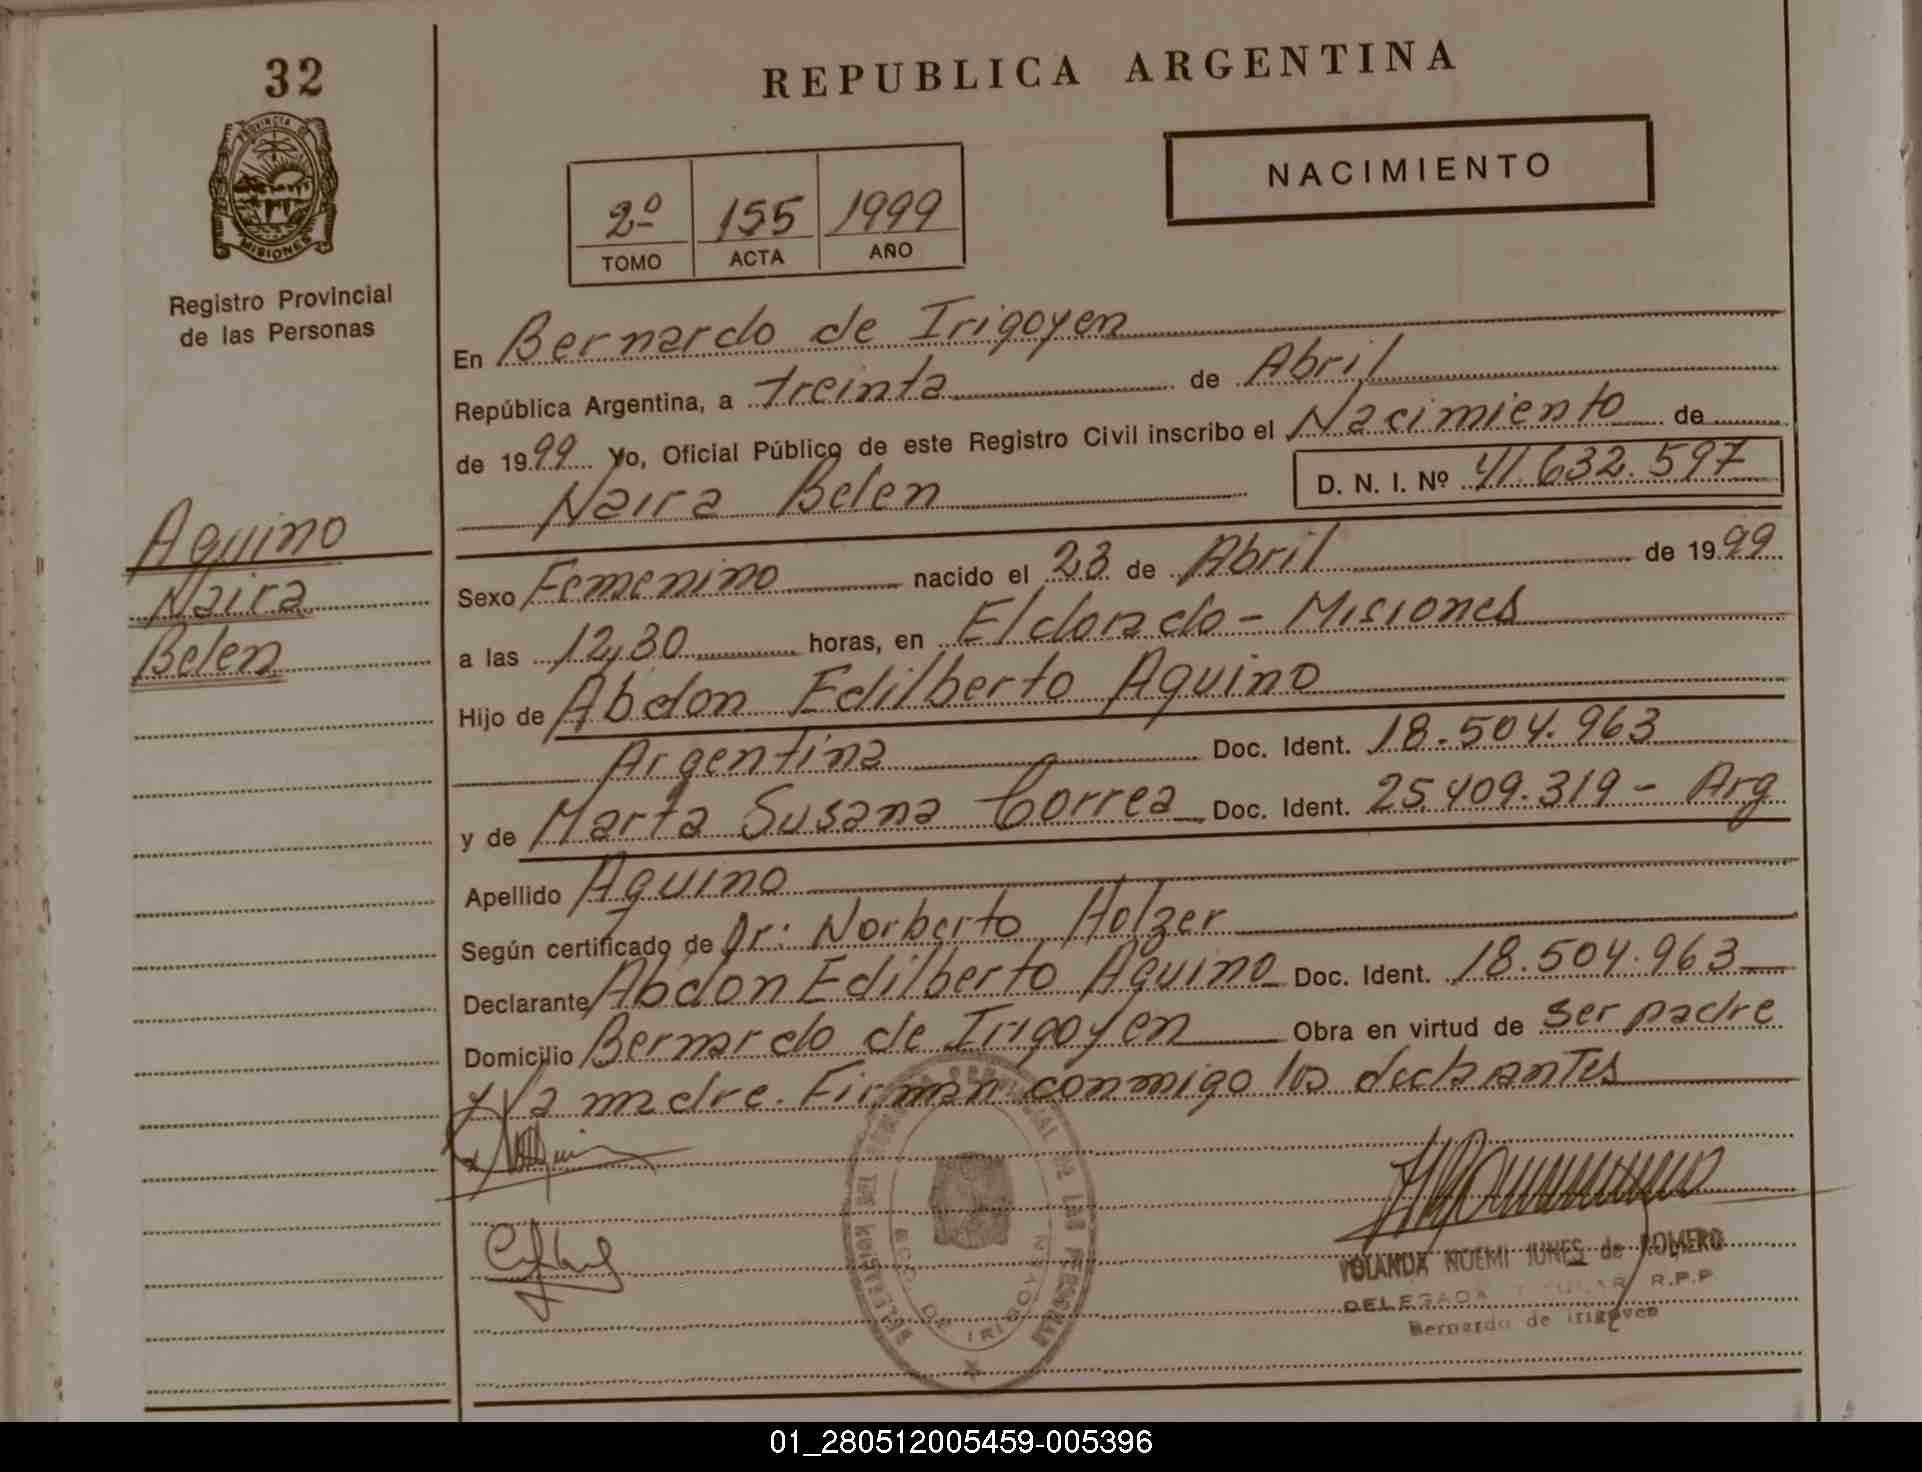 32
PROVINCIA DE
MISIONES
Registro Provincial
de las Personas
Aquino
Naira
Belen
REPUBLICA ARGENTINA
NACIMIENTO
2º 155 1999
TOMO ACTA AÑO
En Bernardo de Irigoyen
República Argentina, a treinta de Abril
de 1999 Yo, Oficial Público de este Registro Civil inscribo el Nacimiento de
Naira Belen D. N. I. Nº 41.632.597
Sexo Femenino nacido el 23 de Abril de 1999
a las 12,30 horas, en Eldorado - Misiones
Hijo de Abdon Edilberto Aquino
Argentina Doc. Ident. 18.504.963
y de Marta Susana Correa Doc. Ident. 25.409.319 - Arg
Apellido Aquino
Según certificado de Dr: Norberto Holzer
Declarante Abdon Edilberto Aquino Doc. Ident. 18.504.963
Domicilio Bernardo de Irigoyen Obra en virtud de ser padre
y la madre. Firman conmigo los declarantes
YOLANDA NOEMI IUNES de ROMERO
DELEGADA TITULAR R.P.P
Bernardo de Irigoyen
01_280512005459-005396